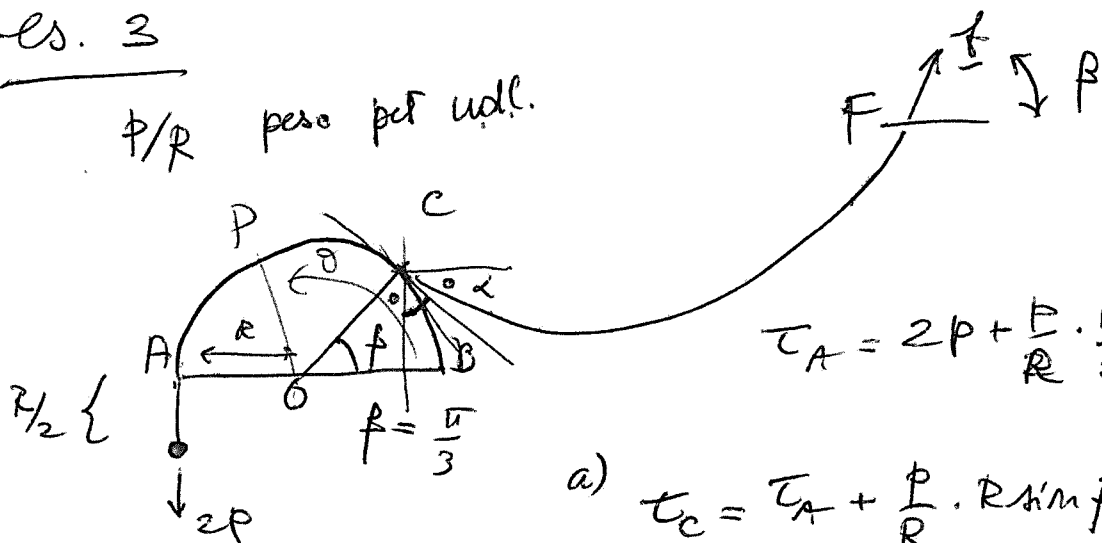 es. 3
p/R peso per udl.
F f β
C
P ϑ α
A R B
O β
R/2 {
β = π/3
2p
τ_A = 2p + p/R ·
a) τ_C = τ_A + p/R · R sin β